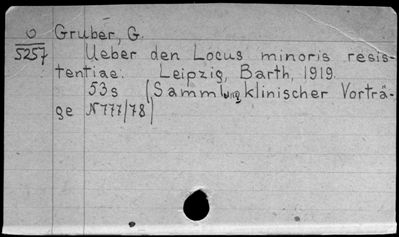 O Gruber, G.
5257 Ueber den Locus minoris resis-
tentiae. Leipzig, Barth, 1919.
53s (Sammlung klinischer Vorträ-
ge N777/78)